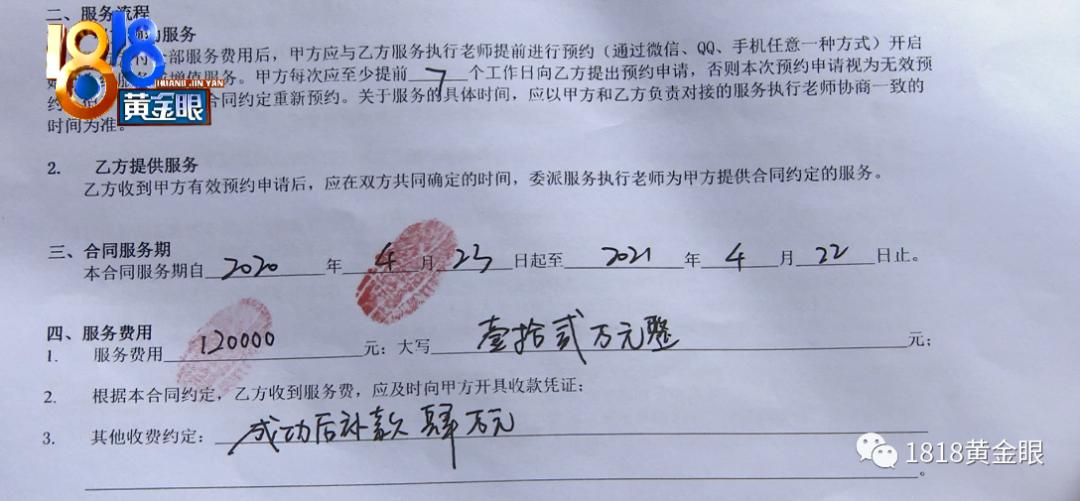 二、服务流程
约服务
部服务费用后，甲方应与乙方服务执行老师提前进行预约（通过微信、QQ、手机任意一种方式）开启
增值服务。甲方每次应至少提前 7 个工作日向乙方提出预约申请，否则本次预约申请视为无效预
约 合同约定重新预约。关于服务的具体时间，应以甲方和乙方负责对接的服务执行老师协商一致的
时间为准。
1818
HUANG JIN YAN
黄金眼
2. 乙方提供服务
乙方收到甲方有效预约申请后，应在双方共同确定的时间，委派服务执行老师为甲方提供合同约定的服务。
三、合同服务期
本合同服务期自 2020 年 4 月 23 日起至 2021 年 4 月 22 日止。
四、服务费用
1. 服务费用 120000 元；大写 壹拾贰万元整 元；
2. 根据本合同约定，乙方收到服务费，应及时向甲方开具收款凭证；
3. 其他收费约定： 成功后补款肆万元
。
1818黄金眼